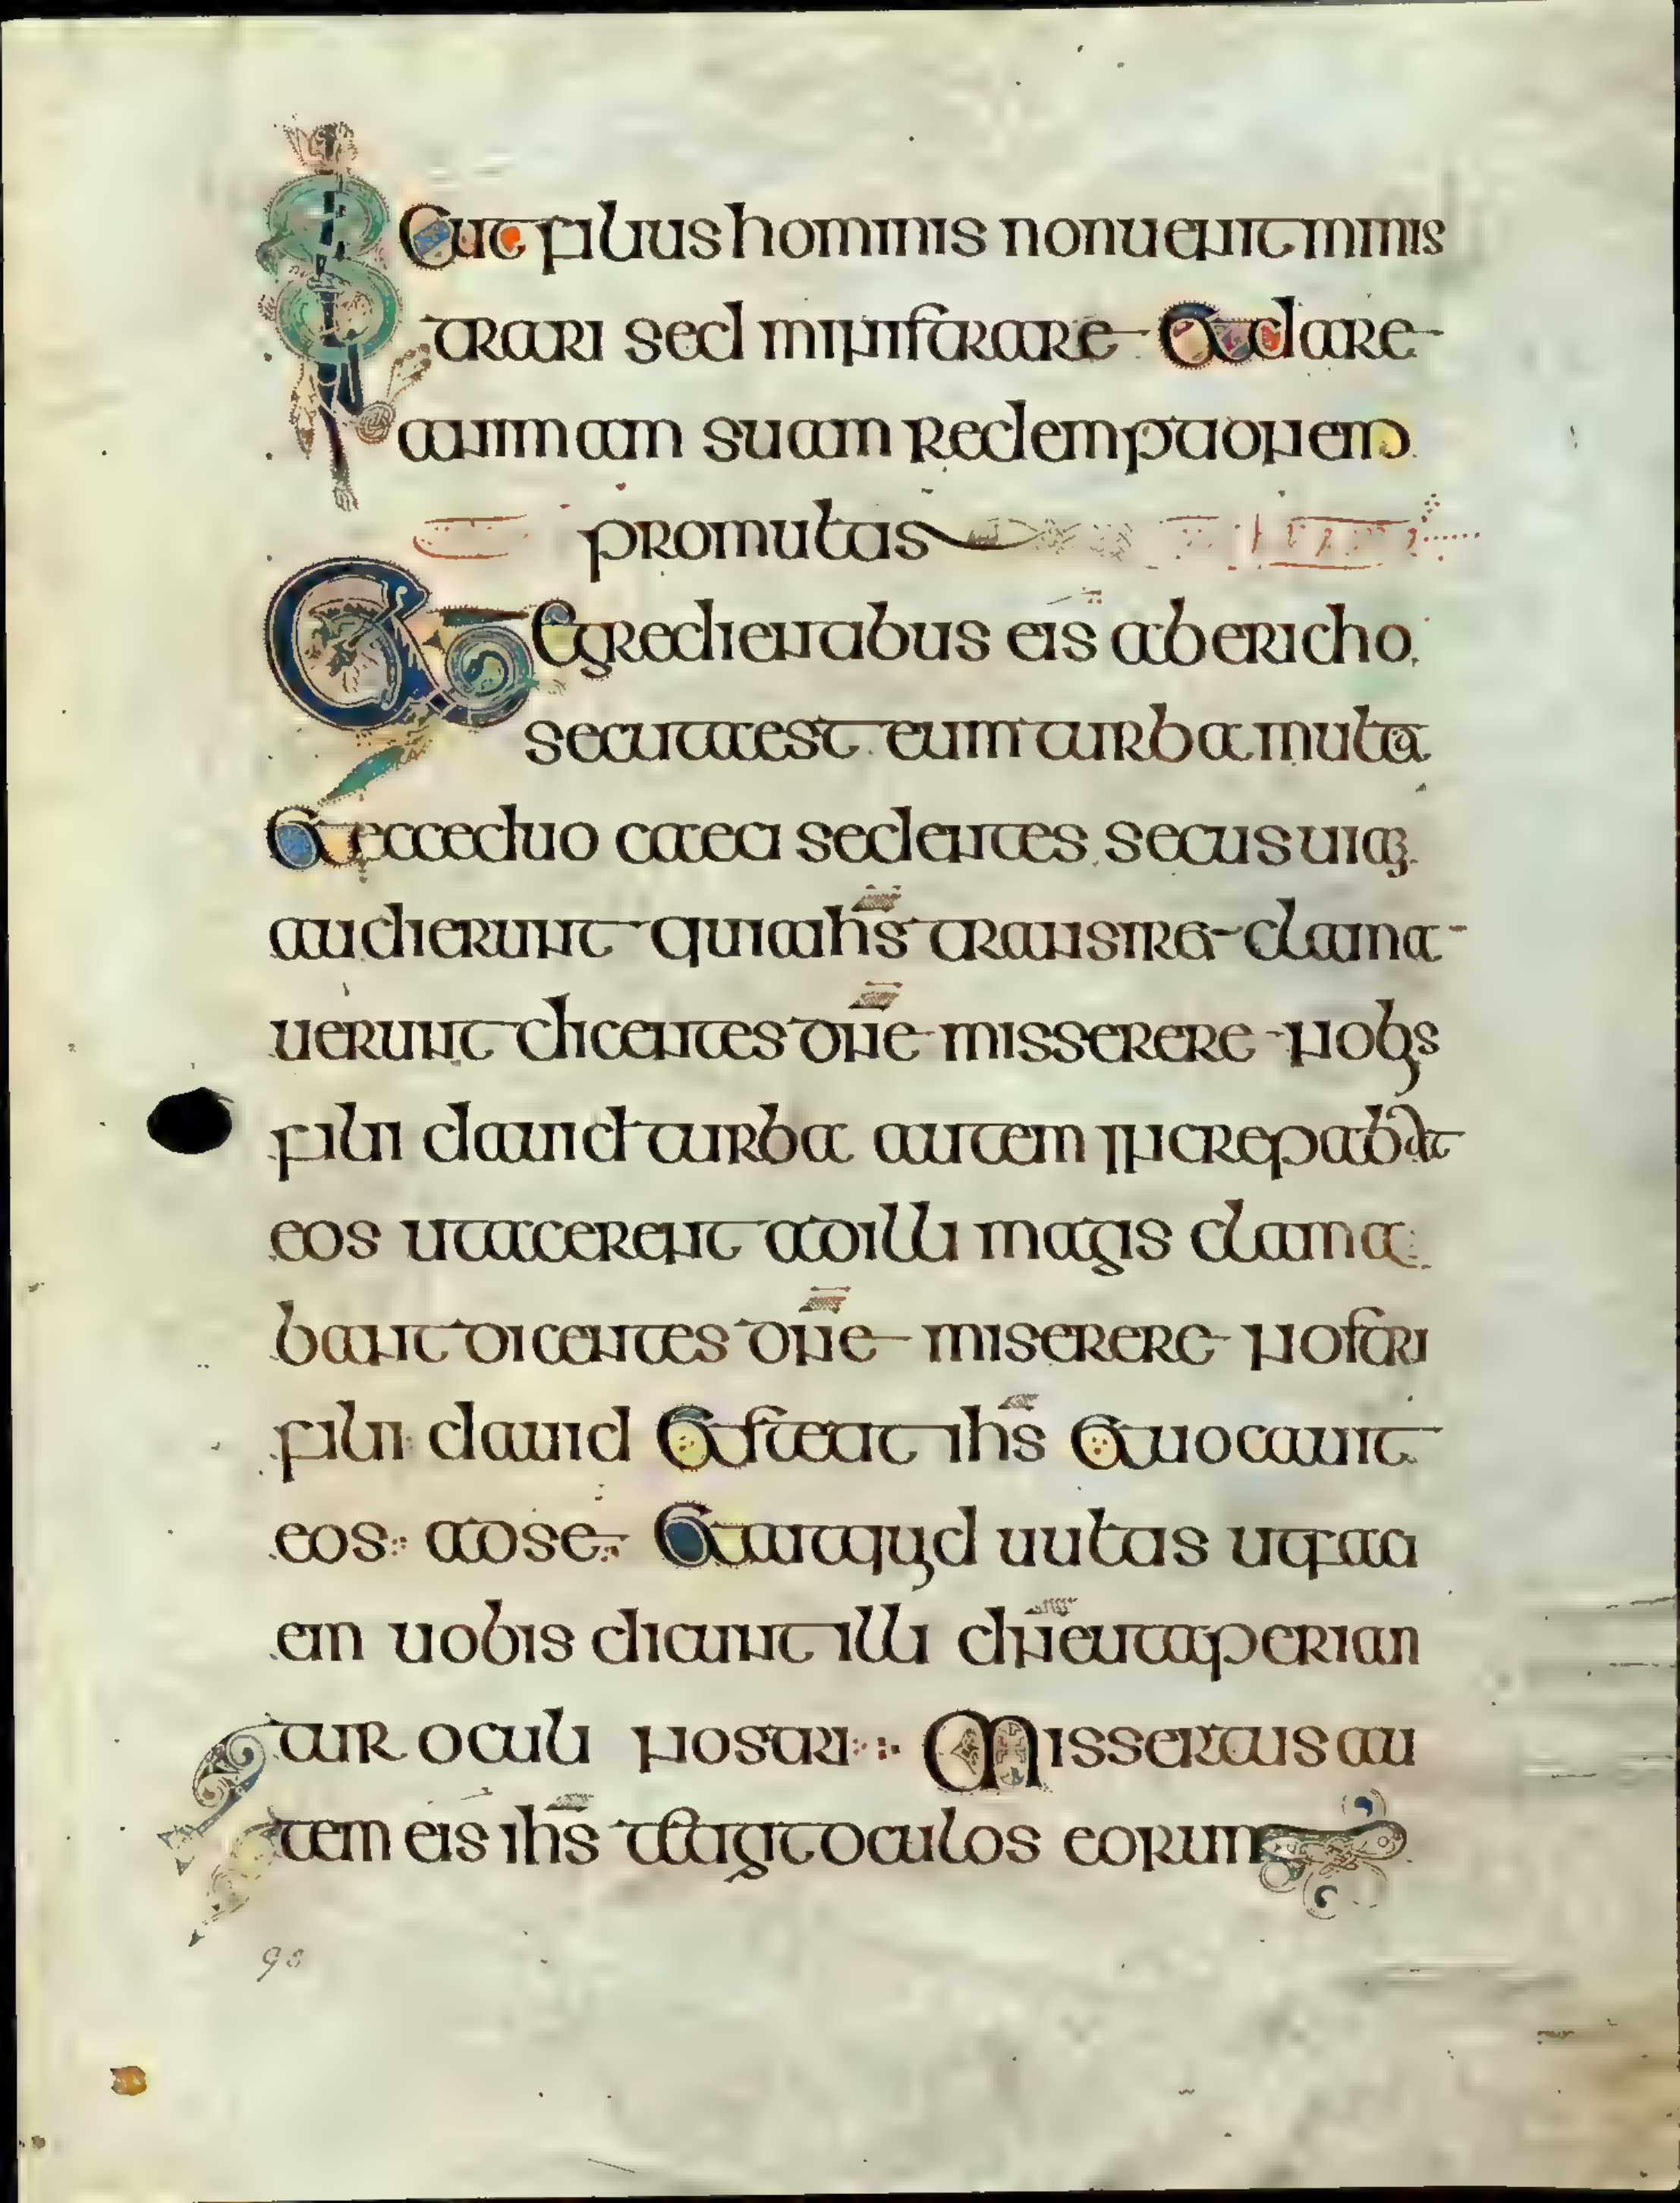 Sicut filius hominis non uenit minis
trari sed ministrare et dare
animam suam redemptionem
pro multis
Et egredientibus eis ab ericho
secuta est eum turba multa
Et ecce duo caeci sedentes secus uiam
audierunt quia ihs transiret clama
uerunt dicentes dne misserere nobs
filii dauid turba autem increpabat
eos ut tacerent ad illi magis clama
bant dicentes dne miserere nostri
filii dauid Et stetit ihs Et uocauit
eos ad se Et ait quid uultis ut faci
am uobis dicunt illi dne ut aperian
tur oculi nostri Missertus au
tem eis ihs tetigit oculos eorum
98